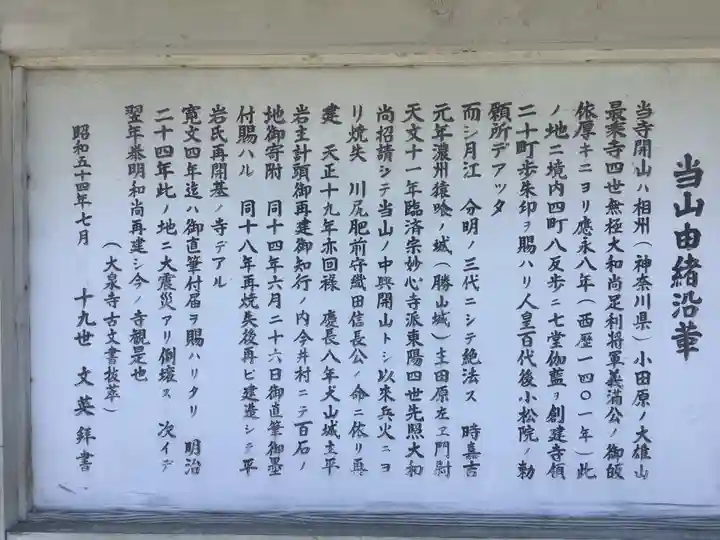 当山由緒沿革
当寺開山ハ相州（神奈川県）小田原ノ大雄山
最乗寺四世無極大和尚足利将軍義満公ノ御皈
依厚キニヨリ應永八年（西歴一四〇一年）此
ノ地ニ境内四町八反歩ニ七堂伽藍ヲ創建寺領
二十町歩朱印ヲ賜ハリ人皇百代後小松院ノ勅
願所デアッタ
而シ月江　分明ノ三代ニシテ絶法ス　時嘉吉
元年濃州猿喰ノ城（勝山城）主田原左ヱ門尉
天文十一年臨済宗妙心寺派東陽四世先照大和
尚招請シテ当山ノ中興開山トシ以来兵火ニヨ
リ焼失　川尻肥前守織田信長公ノ命ニ依リ再
建　天正十九年亦回禄　慶長八年犬山城主平
岩主計頭御再建御知行ノ内今井村ニテ百石ノ
地御寄附　同十四年六月二十六日御直筆御墨
付賜ハル　同十八年再焼失後再ビ建造シテ平
岩氏再開基ノ寺デアル
寛文四年迄ハ御直筆付届ヲ賜ハリタリ　明治
二十四年此ノ地ニ大震災アリ倒壊ス　次イデ
翌年恭明和尚再建シ今ノ寺観是也
（大泉寺古文書抜萃）
昭和五十四年七月　十九世　文英拝書